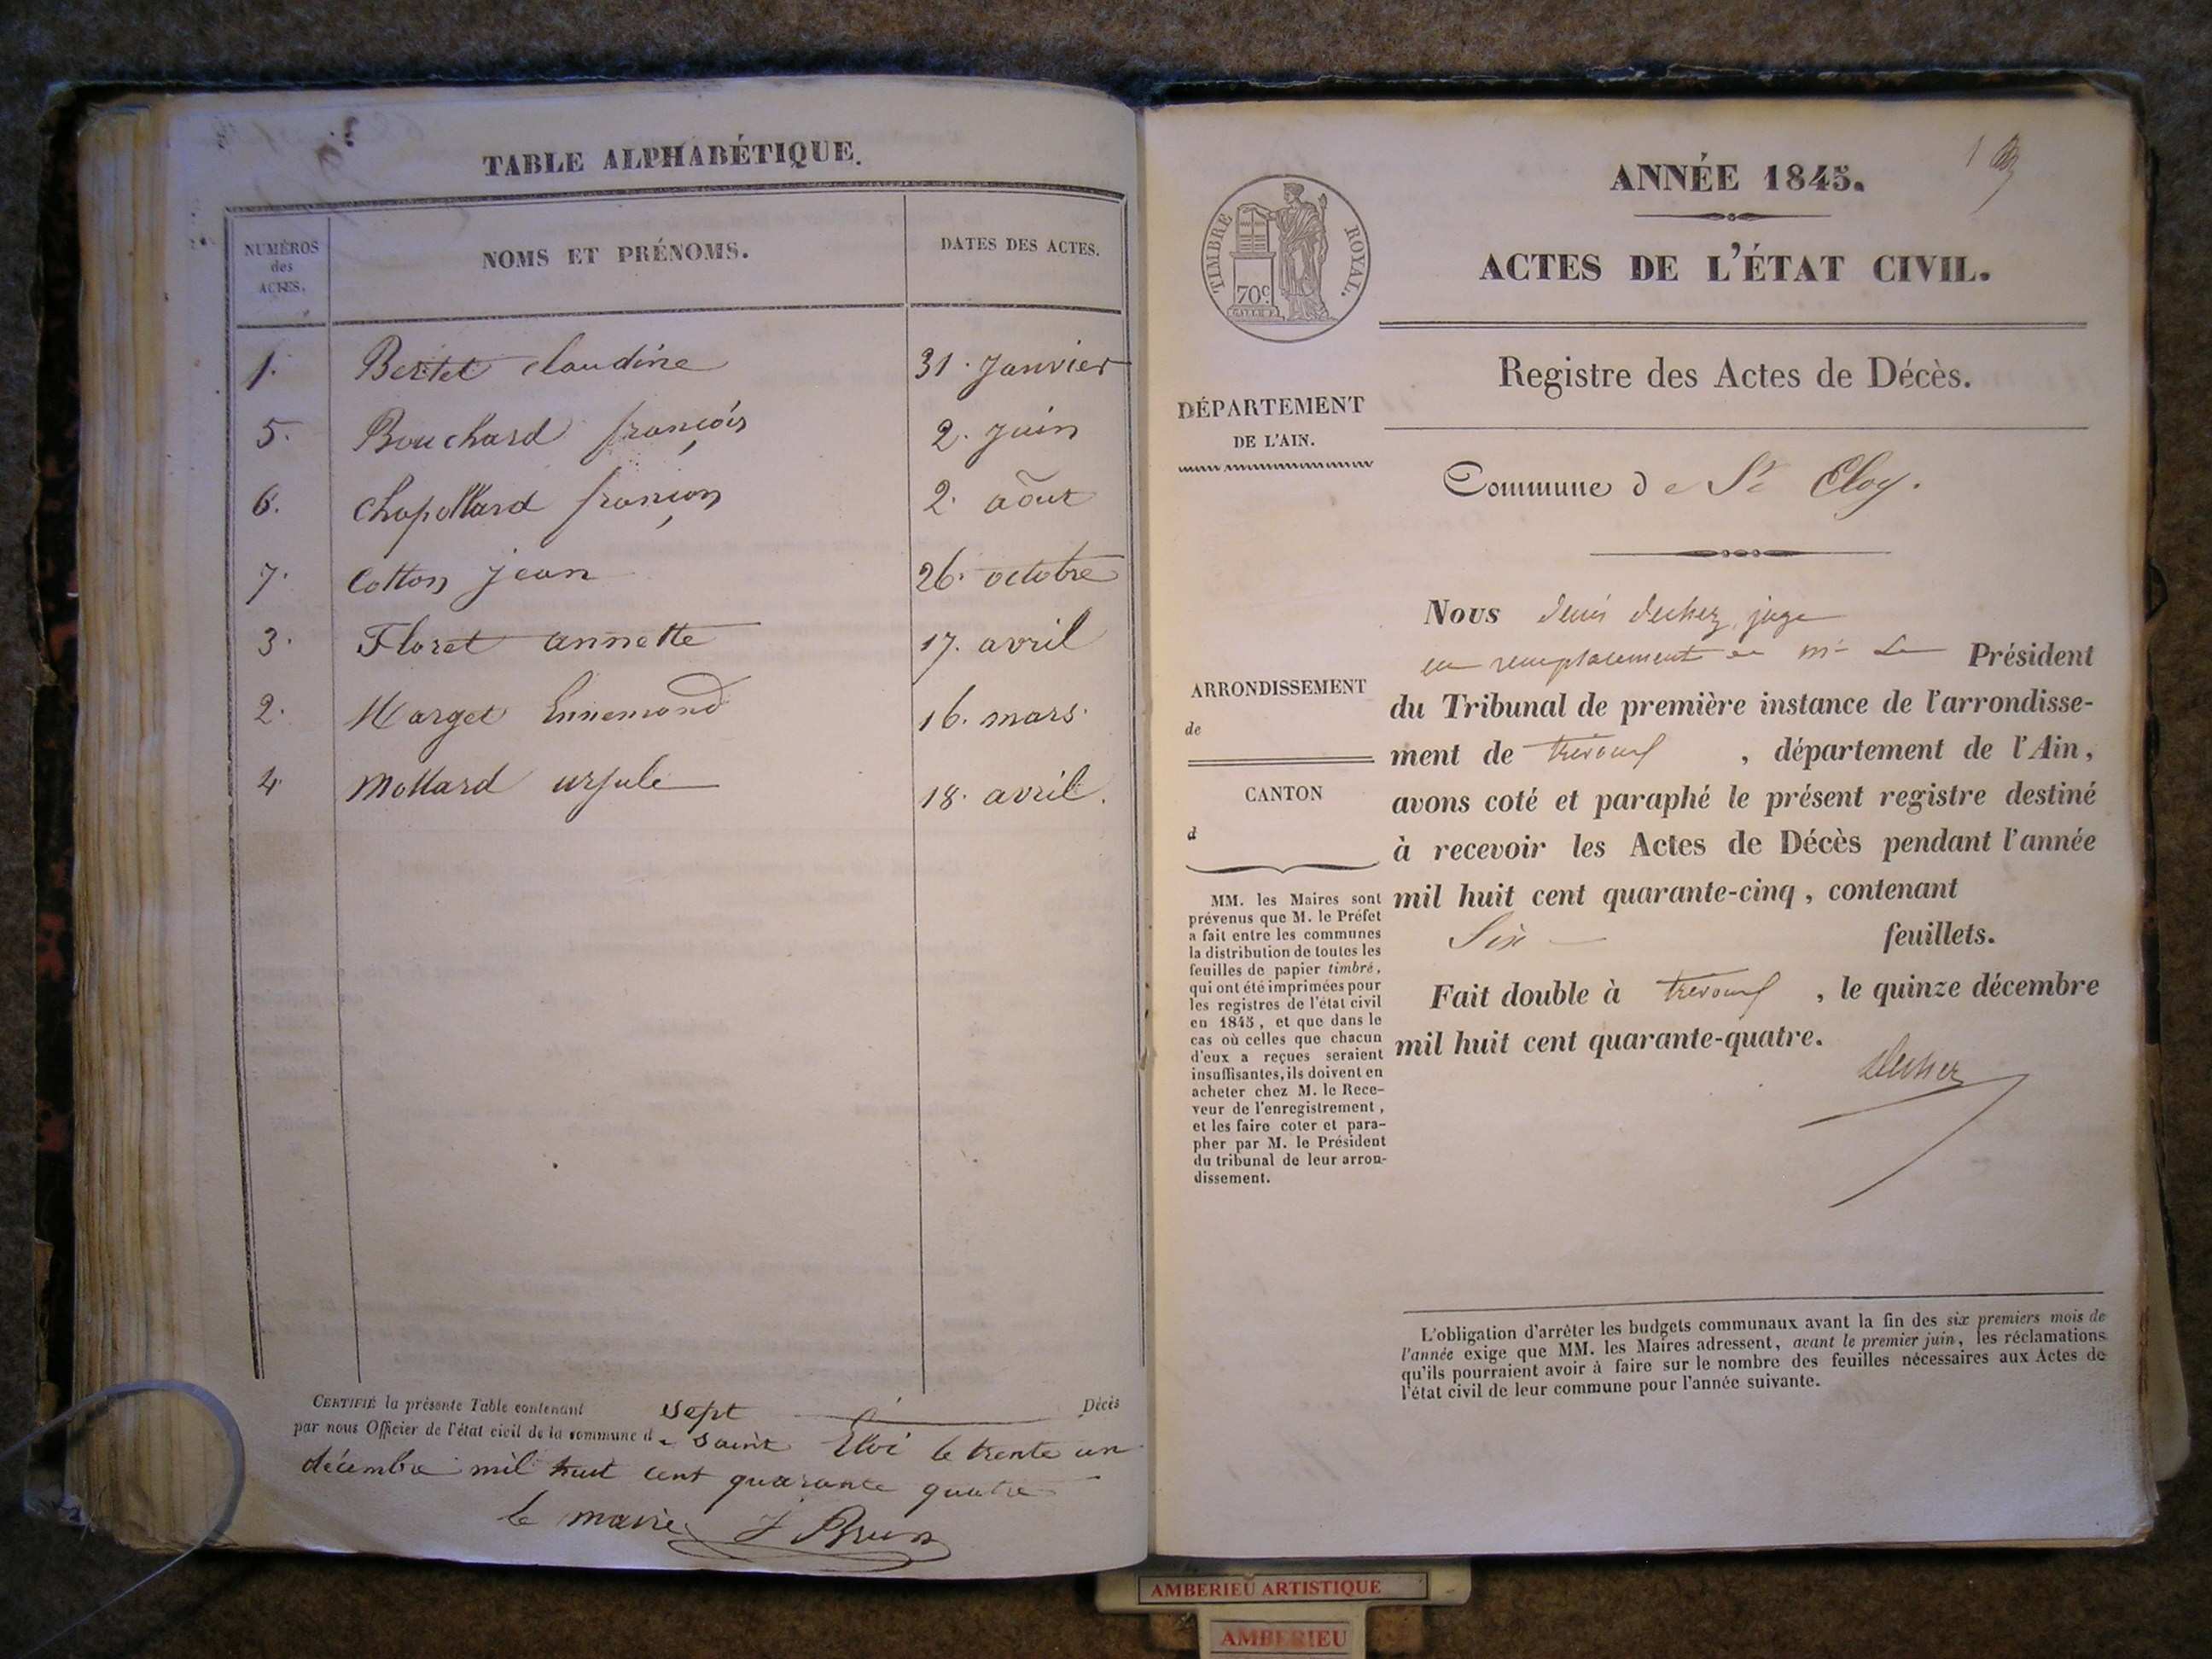 TABLE ALPHABÉTIQUE.
NUMÉROS des ACTES. NOMS ET PRÉNOMS. DATES DES ACTES.
1. Bertet claudine 31. Janvier
5. Bouchard françois 2. Juin
6. Chapollard françois 2. aôut
7. Cotton Jean 26. octobre
3. Floret annette 17. avril
2. Marget Ennemond 16. mars.
4 Mollard ursule 18. avril.
CERTIFIÉ la présente Table contenant sept Décès
par nous Officier de l'état civil de la commune de saint Eloi le trente un
décembre mil huit cent quarante quatre
le maire J Brun
1
ANNÉE 1845.
ACTES DE L'ÉTAT CIVIL.
TIMBRE ROYAL.
70c
Registre des Actes de Décès.
DÉPARTEMENT
DE L'AIN.
Commune de St Eloy.
ARRONDISSEMENT
de
CANTON
d
MM. les Maires sont
prévenus que M. le Préfet
a fait entre les communes
la distribution de toutes les
feuilles de papier timbré,
qui ont été imprimées pour
les registres de l'état civil
en 1845, et que dans le
cas où celles que chacun
d'eux a reçues seraient
insuffisantes, ils doivent en
acheter chez M. le Rece-
veur de l'enregistrement,
et les faire coter et para-
pher par M. le Président
du tribunal de leur arron-
dissement.
Nous Denis juge
en remplacement de mr Le Président
du Tribunal de première instance de l'arrondisse-
ment de trévoux, département de l'Ain,
avons coté et paraphé le présent registre destiné
à recevoir les Actes de Décès pendant l'année
mil huit cent quarante-cinq, contenant
Six feuillets.
Fait double à trévoux, le quinze décembre
mil huit cent quarante-quatre.
L'obligation d'arrêter les budgets communaux avant la fin des six premiers mois de
l'année exige que MM. les Maires adressent, avant le premier juin, les réclamations
qu'ils pourraient avoir à faire sur le nombre des feuilles nécessaires aux Actes de
l'état civil de leur commune pour l'année suivante.
AMBERIEU ARTISTIQUE
AMBERIEU